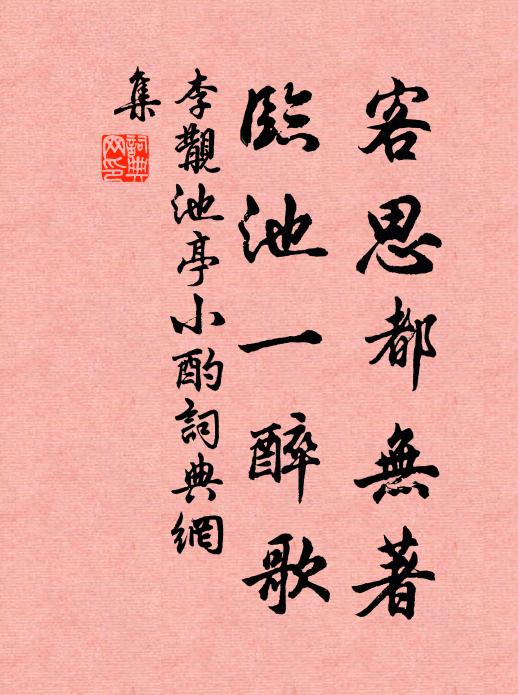 客思都無著
臨池一醉歌
李覯池亭小酌詞典網
集
詞典
网印